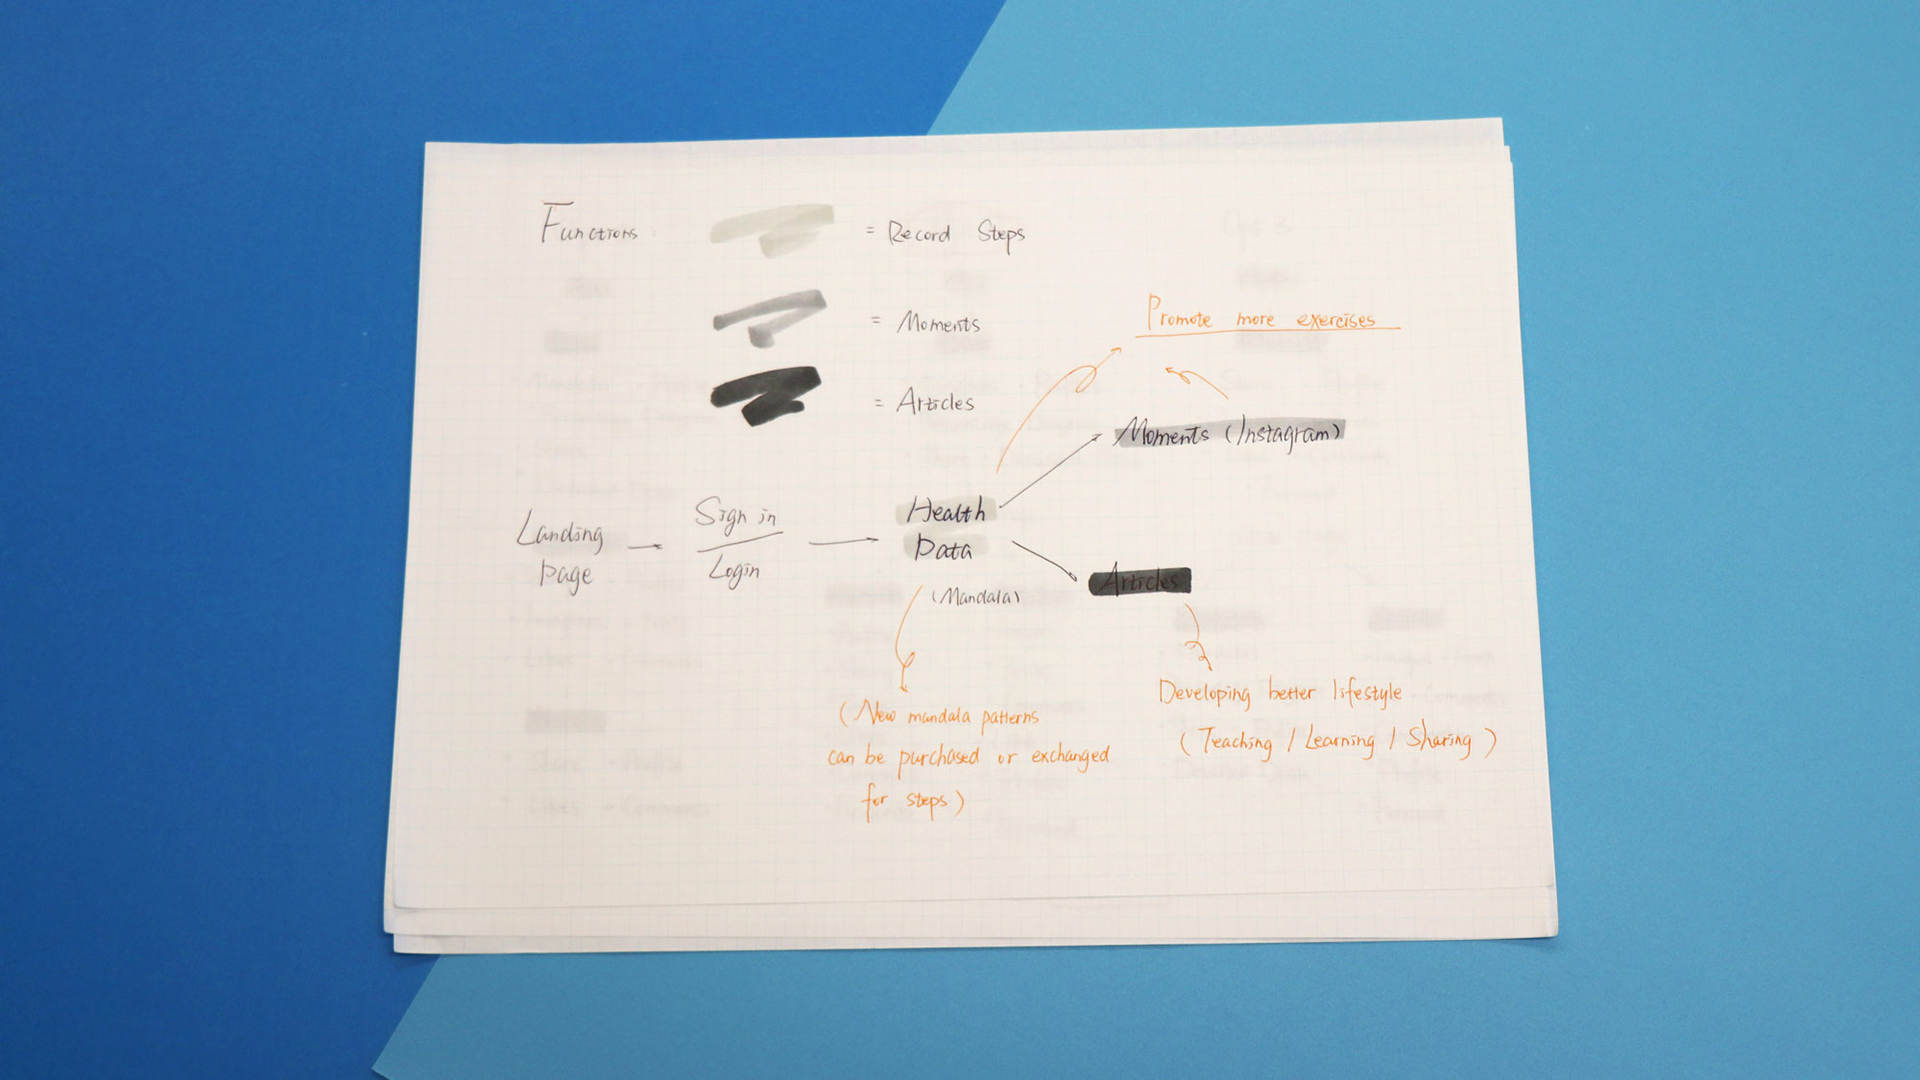 Functions
= Record Steps
= Moments
= Articles
Promote more exercises
Moments (Instagram)
Landing
page
Sign in
Login
Health
Data
(Mandala)
Articles
(New mandala patterns
can be purchased or exchanged
for steps)
Developing better lifestyle
(Teaching / Learning / Sharing)